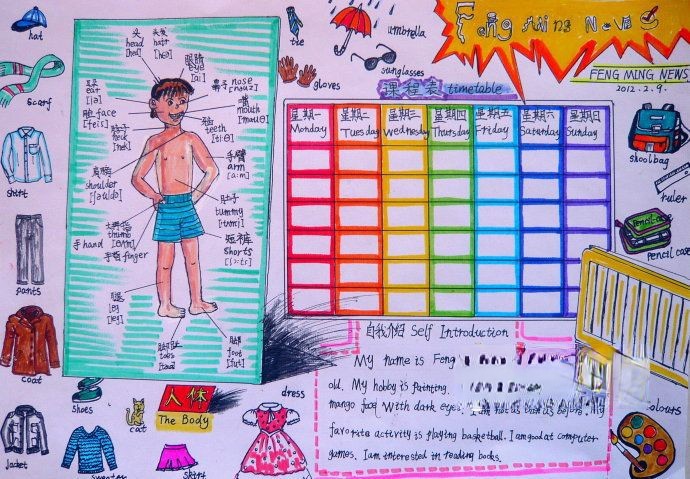 Feng Ming News
FENG MING NEWS
2012.2.9.
hat
scarf
shirt
pants
coat
shoes
jacket
sweater
cat
skirt
dress
tie
gloves
umbrella
sunglasses
schoolbag
ruler
pencil case
colours
头
head
[hed]
头发
hair
眼睛
eye
[ai]
鼻子 nose
[nəuz]
嘴
mouth
[mauθ]
耳朵
ear
[iə]
脸 face
[feis]
脖子
neck
[nek]
teeth
[ti:θ]
手臂
arm
[a:m]
肩膀
shoulder
肚子
tummy
thumb
手 hand
finger
短裤
shorts
[ʃɔ:ts]
腿
leg
[leg]
脚趾
toes
脚
foot
[fut]
人体
The Body
课程表 timetable
星期一 星期二 星期三 星期四 星期五 星期六 星期日
Monday Tuesday Wednesday Thursday Friday Saturday Sunday
自我介绍 Self Introduction
My name is Feng
old. My hobby is painting.
mango face With dark eyes. My
favorate activity is playing basketball. I am good at computer
games. I am interested in reading books.